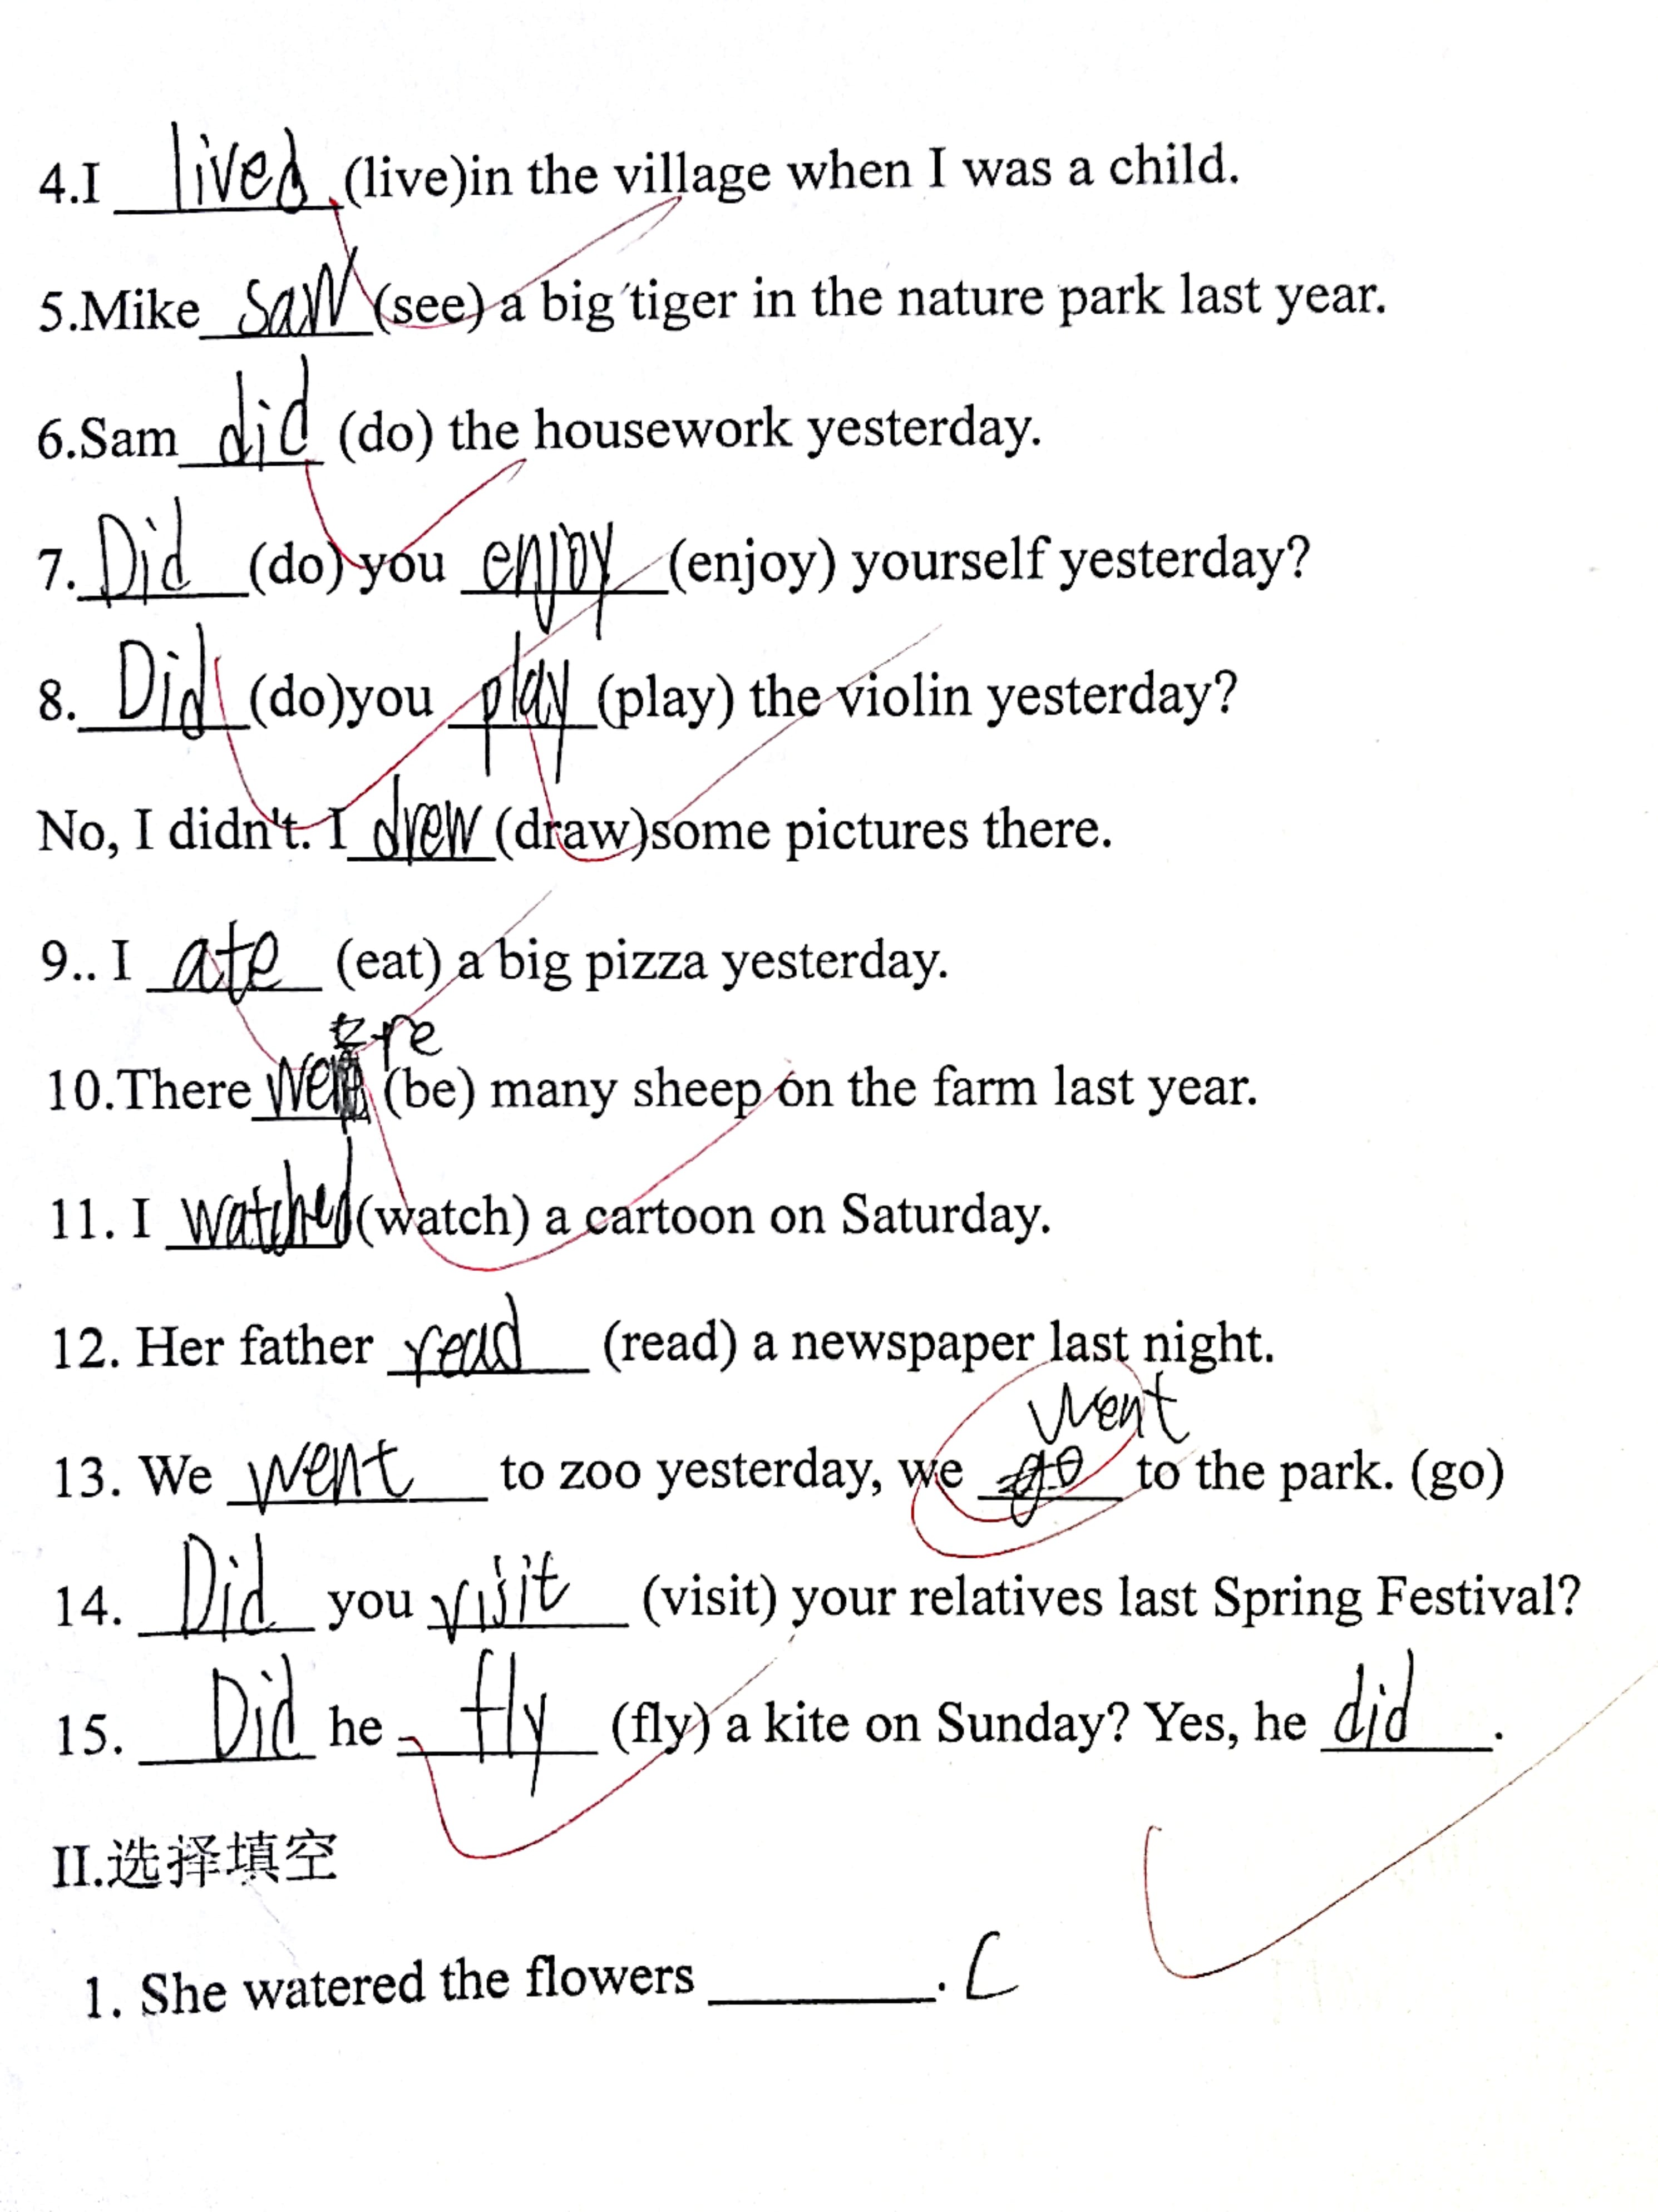 4.I lived (live)in the village when I was a child.
5.Mike saw (see) a big tiger in the nature park last year.
6.Sam did (do) the housework yesterday.
7. Did (do) you enjoy (enjoy) yourself yesterday?
8. Did (do)you play (play) the violin yesterday?
No, I didn't. I drew (draw)some pictures there.
9.. I ate (eat) a big pizza yesterday.
re
10.There we (be) many sheep on the farm last year.
11. I watched (watch) a cartoon on Saturday.
12. Her father read (read) a newspaper last night.
went
13. We went to zoo yesterday, we go to the park. (go)
14. Did you visit (visit) your relatives last Spring Festival?
15. Did he fly (fly) a kite on Sunday? Yes, he did.
II.选择填空
1. She watered the flowers ________. C